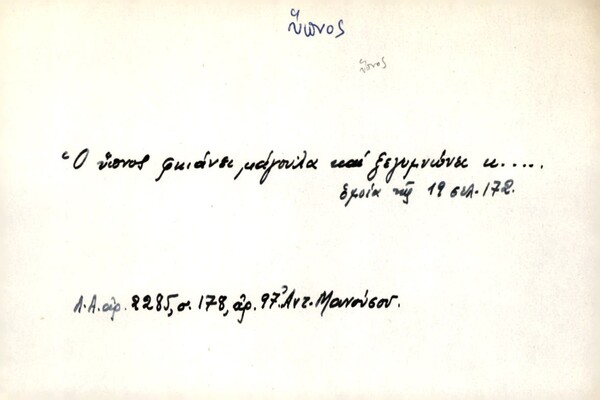 ὕπνος
ὕπνος
Ὁ ὕπνος φκιάνει μάγουλα καί ξεγυμνώνει κ.....
ὁμοία τῆς 19 σελ. 172.
Λ.Α. ἀρ. 2285, σ. 178, ἀρ. 97 Ἀντ. Μανούσου.